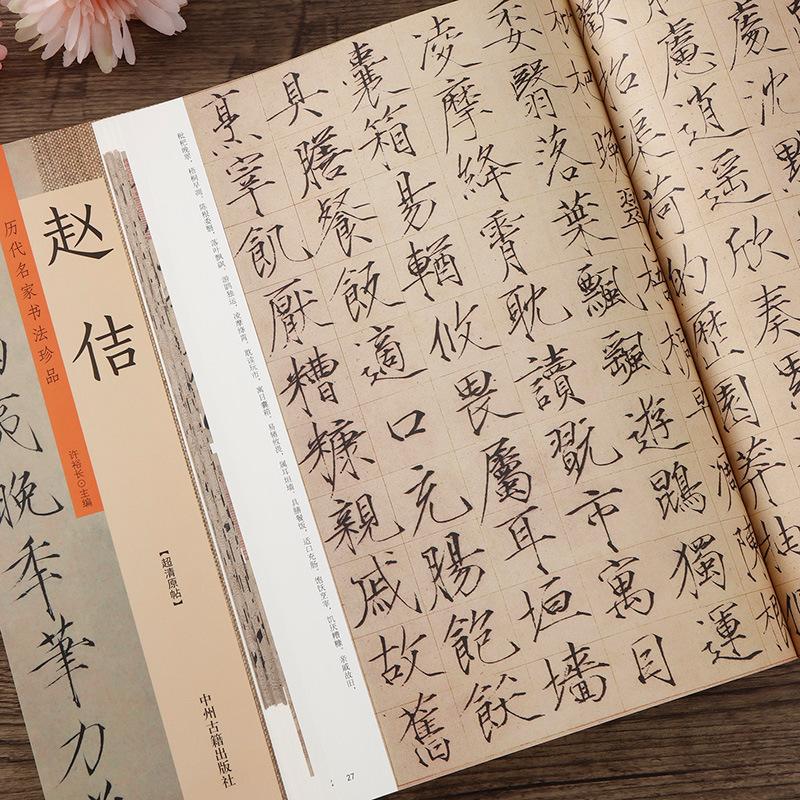 历代名家书法珍品
赵佶
许裕长⊙主编
【超清原帖】
中州古籍出版社
夷晚季華力
處沈默
慮逍遙欣奏累
歡招渠荷的歷園莽抽條
枇杷晚翠梧桐早凋陳根
委翳落葉飄飖遊鵾獨運
凌摩絳霄耽讀翫市寓目
囊箱易輶攸畏屬耳垣墻
具膳餐飯適口充腸飽飫
烹宰飢厭糟糠親戚故舊
枇杷晚翠，梧桐早凋，陈根委翳，落叶飘飖，游鹍独运，凌摩绛霄，耽读玩市，寓目囊箱，易輶攸畏，属耳垣墙，具膳餐饭，适口充肠，饱饫烹宰，饥厌糟糠，亲戚故旧，
27